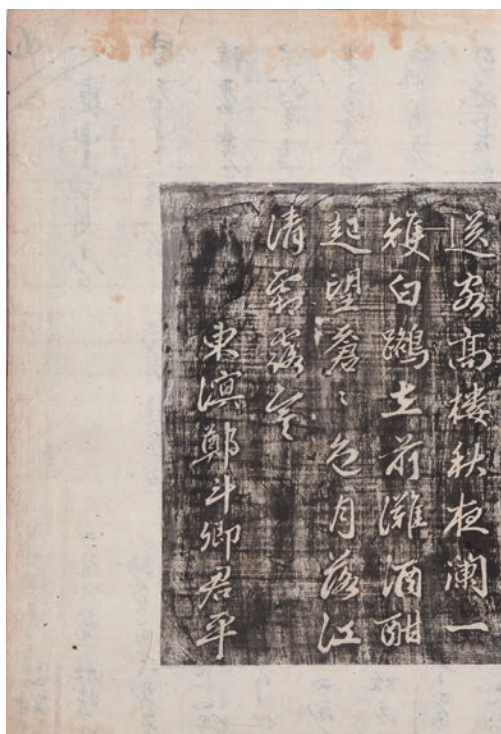 送客高楼秋夜闌一
雙白鷗前灘酒酣
起望蒼〻色月落江
清霜露寒
東溟鄭斗卿君平